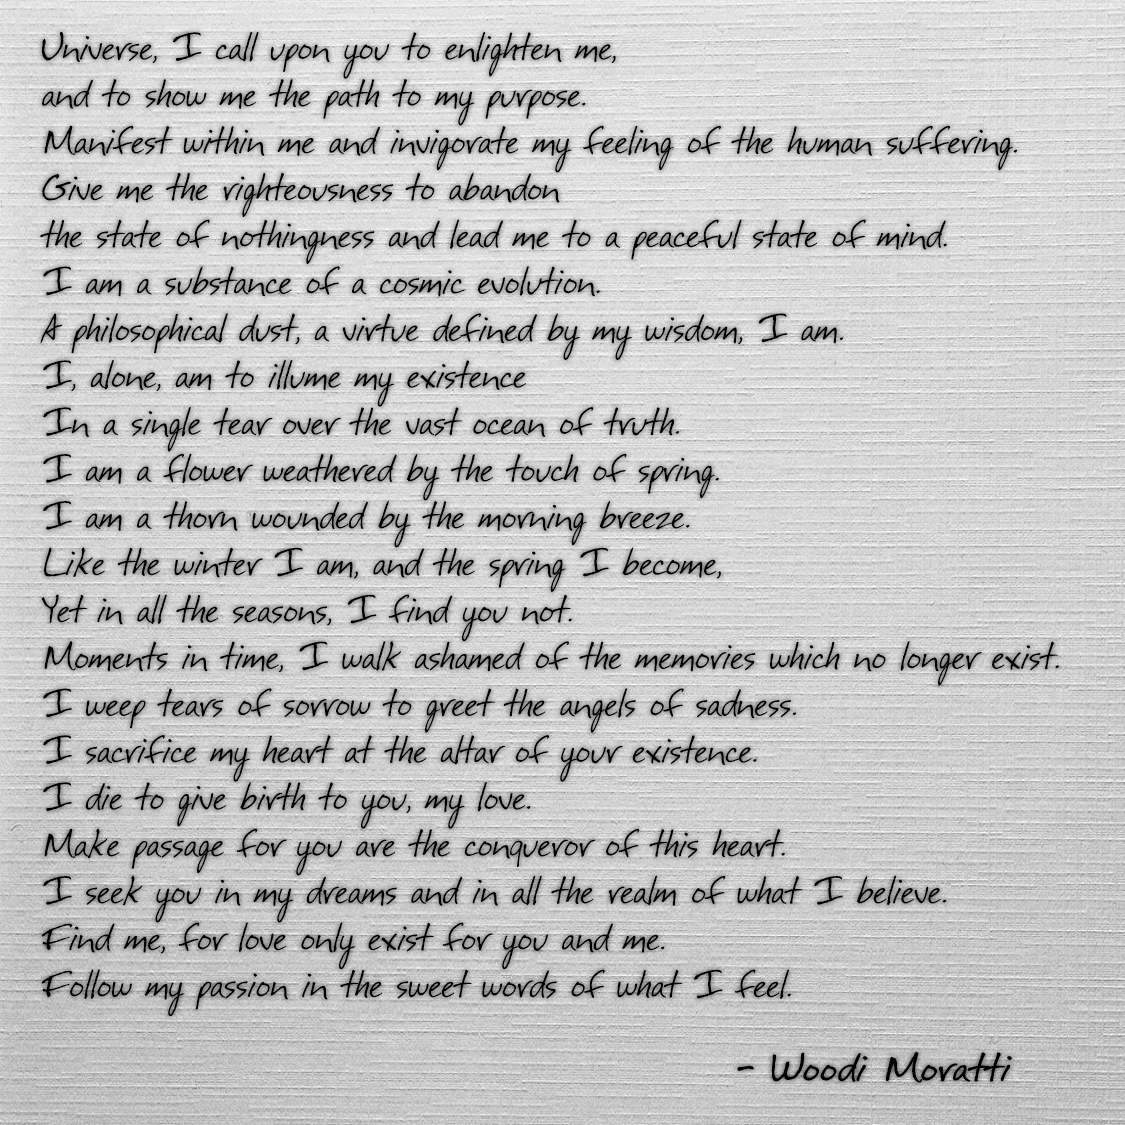 Universe, I call upon you to enlighten me,
and to show me the path to my purpose.
Manifest within me and invigorate my feeling of the human suffering.
Give me the righteousness to abandon
the state of nothingness and lead me to a peaceful state of mind.
I am a substance of a cosmic evolution.
A philosophical dust, a virtue defined by my wisdom, I am.
I, alone, am to illume my existence
In a single tear over the vast ocean of truth.
I am a flower weathered by the touch of spring.
I am a thorn wounded by the morning breeze.
Like the winter I am, and the spring I become,
Yet in all the seasons, I find you not.
Moments in time, I walk ashamed of the memories which no longer exist.
I weep tears of sorrow to greet the angels of sadness.
I sacrifice my heart at the altar of your existence.
I die to give birth to you, my love.
Make passage for you are the conqueror of this heart.
I seek you in my dreams and in all the realm of what I believe.
Find me, for love only exist for you and me.
Follow my passion in the sweet words of what I feel.
- Woodi Moratti